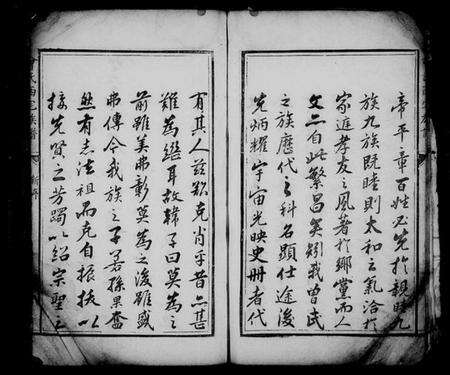 帝平章百姓必先於親睦九
族九族既睦則太和之氣洽於
家庭孝友之風著於鄉黨而人
文亦自此繁昌矣矧我曾武
之族歷代之科名顯仕途後
先炳耀宇宙光映史冊者代
有其人茲欲克肖乎昔亦甚
難為繼耳故韓子曰莫為之
前雖美弗彰莫為之後雖盛
弗傳今我族之子若孫果奮
然有志法祖而克自振拔以
接先賢之芳躅以紹宗聖之